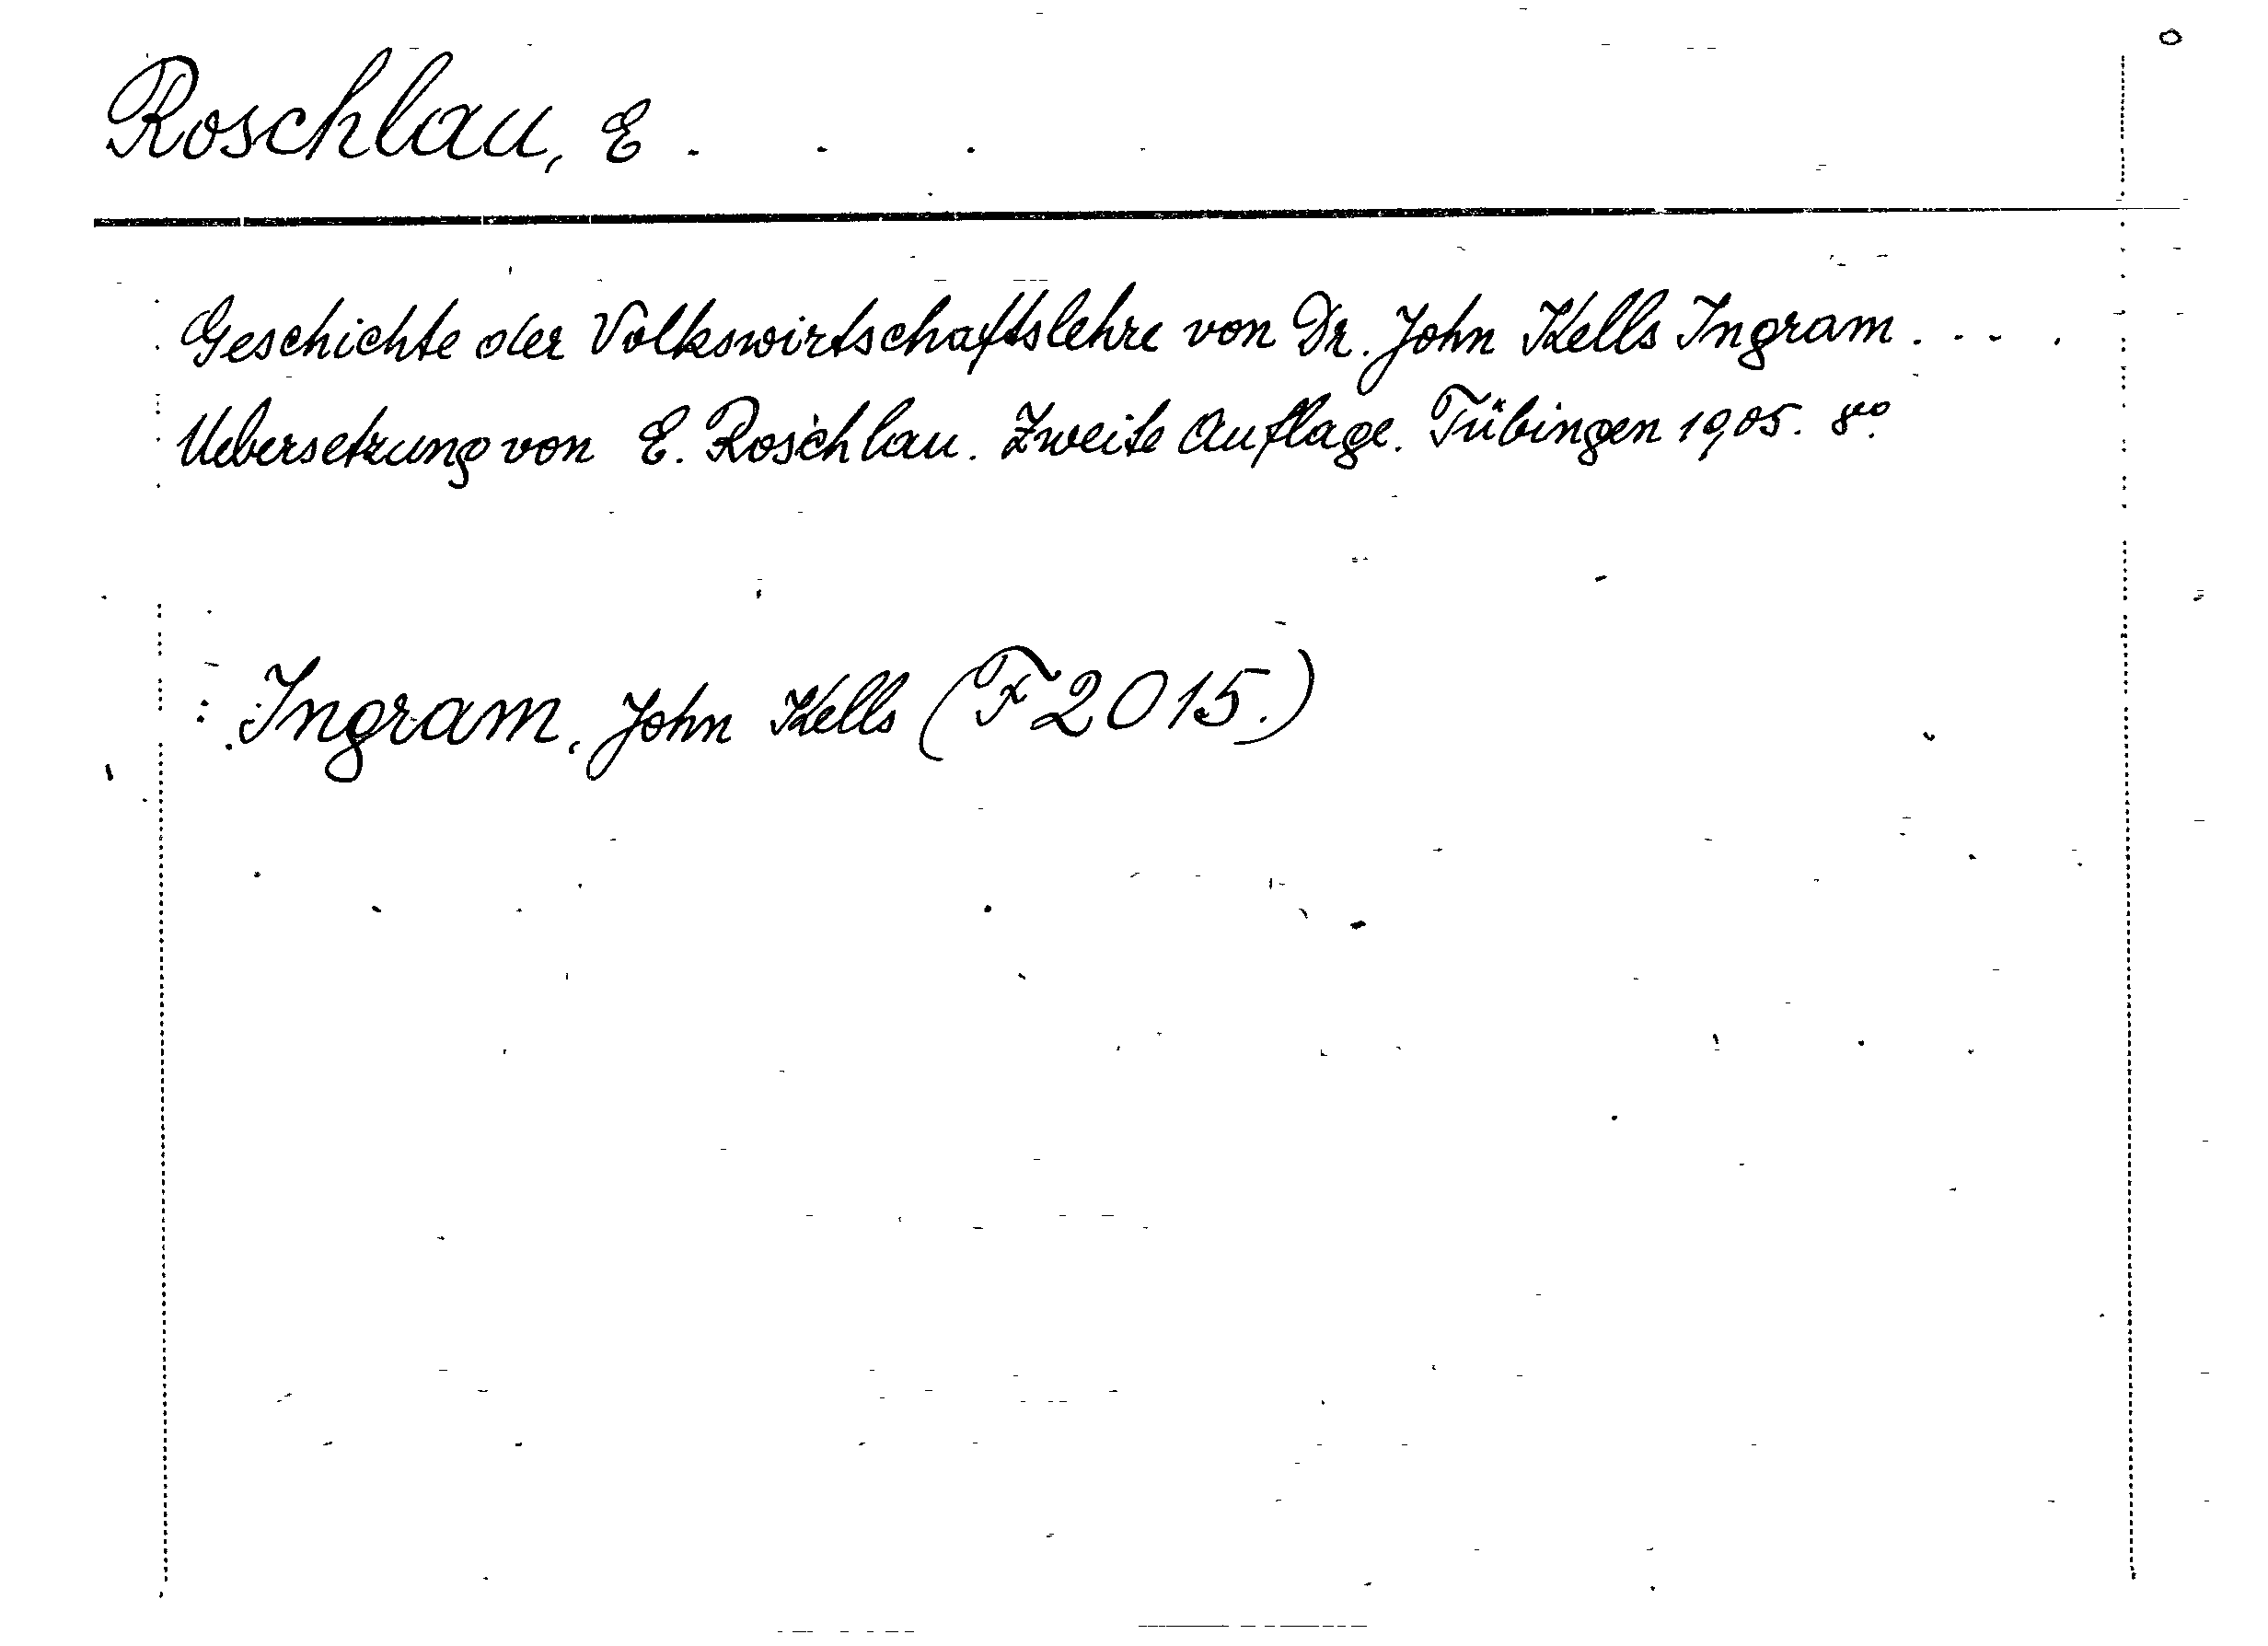 Roschlau, E. . . .
Geschichte der Volkswirtschaftslehre von Dr. John Kells Ingram. . . .
Uebersetzung von E. Roschlau. Zweite Auflage. Tübingen 1905. 8vo.
Ingram, John Kells (F2015.)